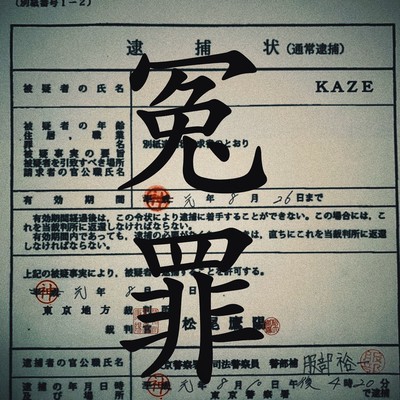 (別紙番号1-2)
逮捕状(通常逮捕)
冤罪
被疑者の氏名
KAZE
被疑者の年齢
住居、職業
罪名
被疑事実の要旨
被疑者を引致すべき場所
請求者の官公職氏名
別紙
のとおり
有効期間
元年8月26日まで
有効期間経過後は、この令状により逮捕に着手することができない。この場合には、こ
れを当裁判所に返還しなければならない。
有効期間内であっても、逮捕の必要が
は、直ちにこれを当裁判所に返還
しなければならない。
上記の被疑事実により、被疑者を逮捕することを許可する。
元年8月
日
東京地方裁判所
裁判官
松尾
逮捕者の官公職氏名
京警察署 司法警察員 警部補 服部裕一
逮捕の年月日時
及び場所
元年8月
日午後4時20分
東京警察署
で逮捕